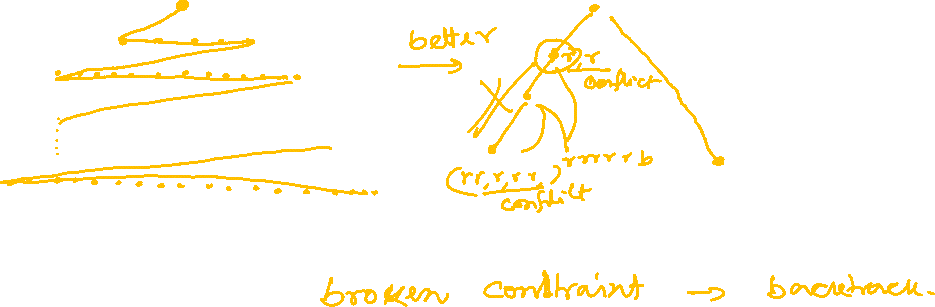 better
r, r
conflict
rrrrrb
(rr,r,rr,)
conflict
broken constraint → backtrack.